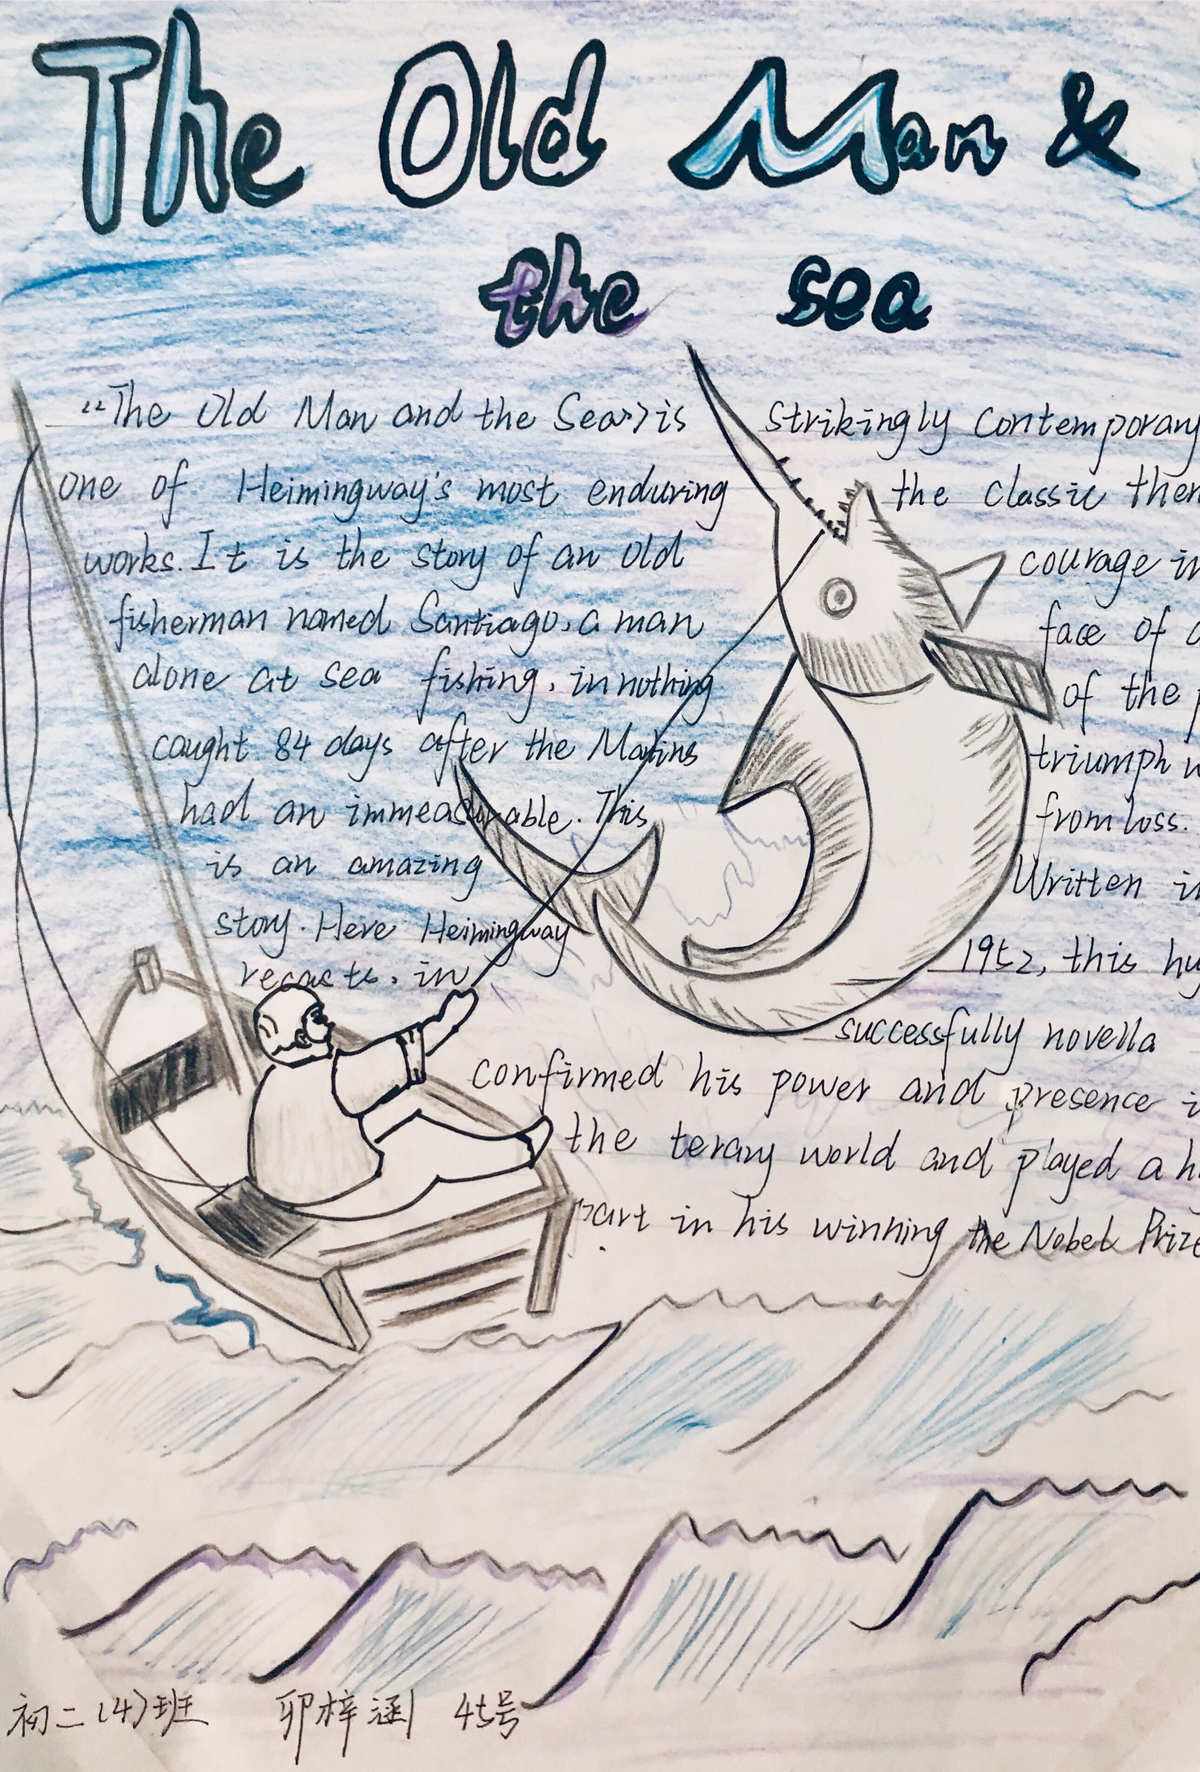 The Old Man &
the sea
“The Old Man and the Sea》is
one of Heimingway's most enduring
works. It is the story of an old
fisherman named Santiago, a man
alone at sea fishing, in nothing
caught 84 days after the Matins
had an immeasurable. This
is an amazing
story. Here Heimingway
recasts, in
strikingly contemporary
the classic
courage in
face of
of the
triumph
from loss.
Written in
1952, this
successfully novella
confirmed his power and presence
the terary world and played a
part in his winning the Nobel Prize
初二(4)班 卯梓涵 45号